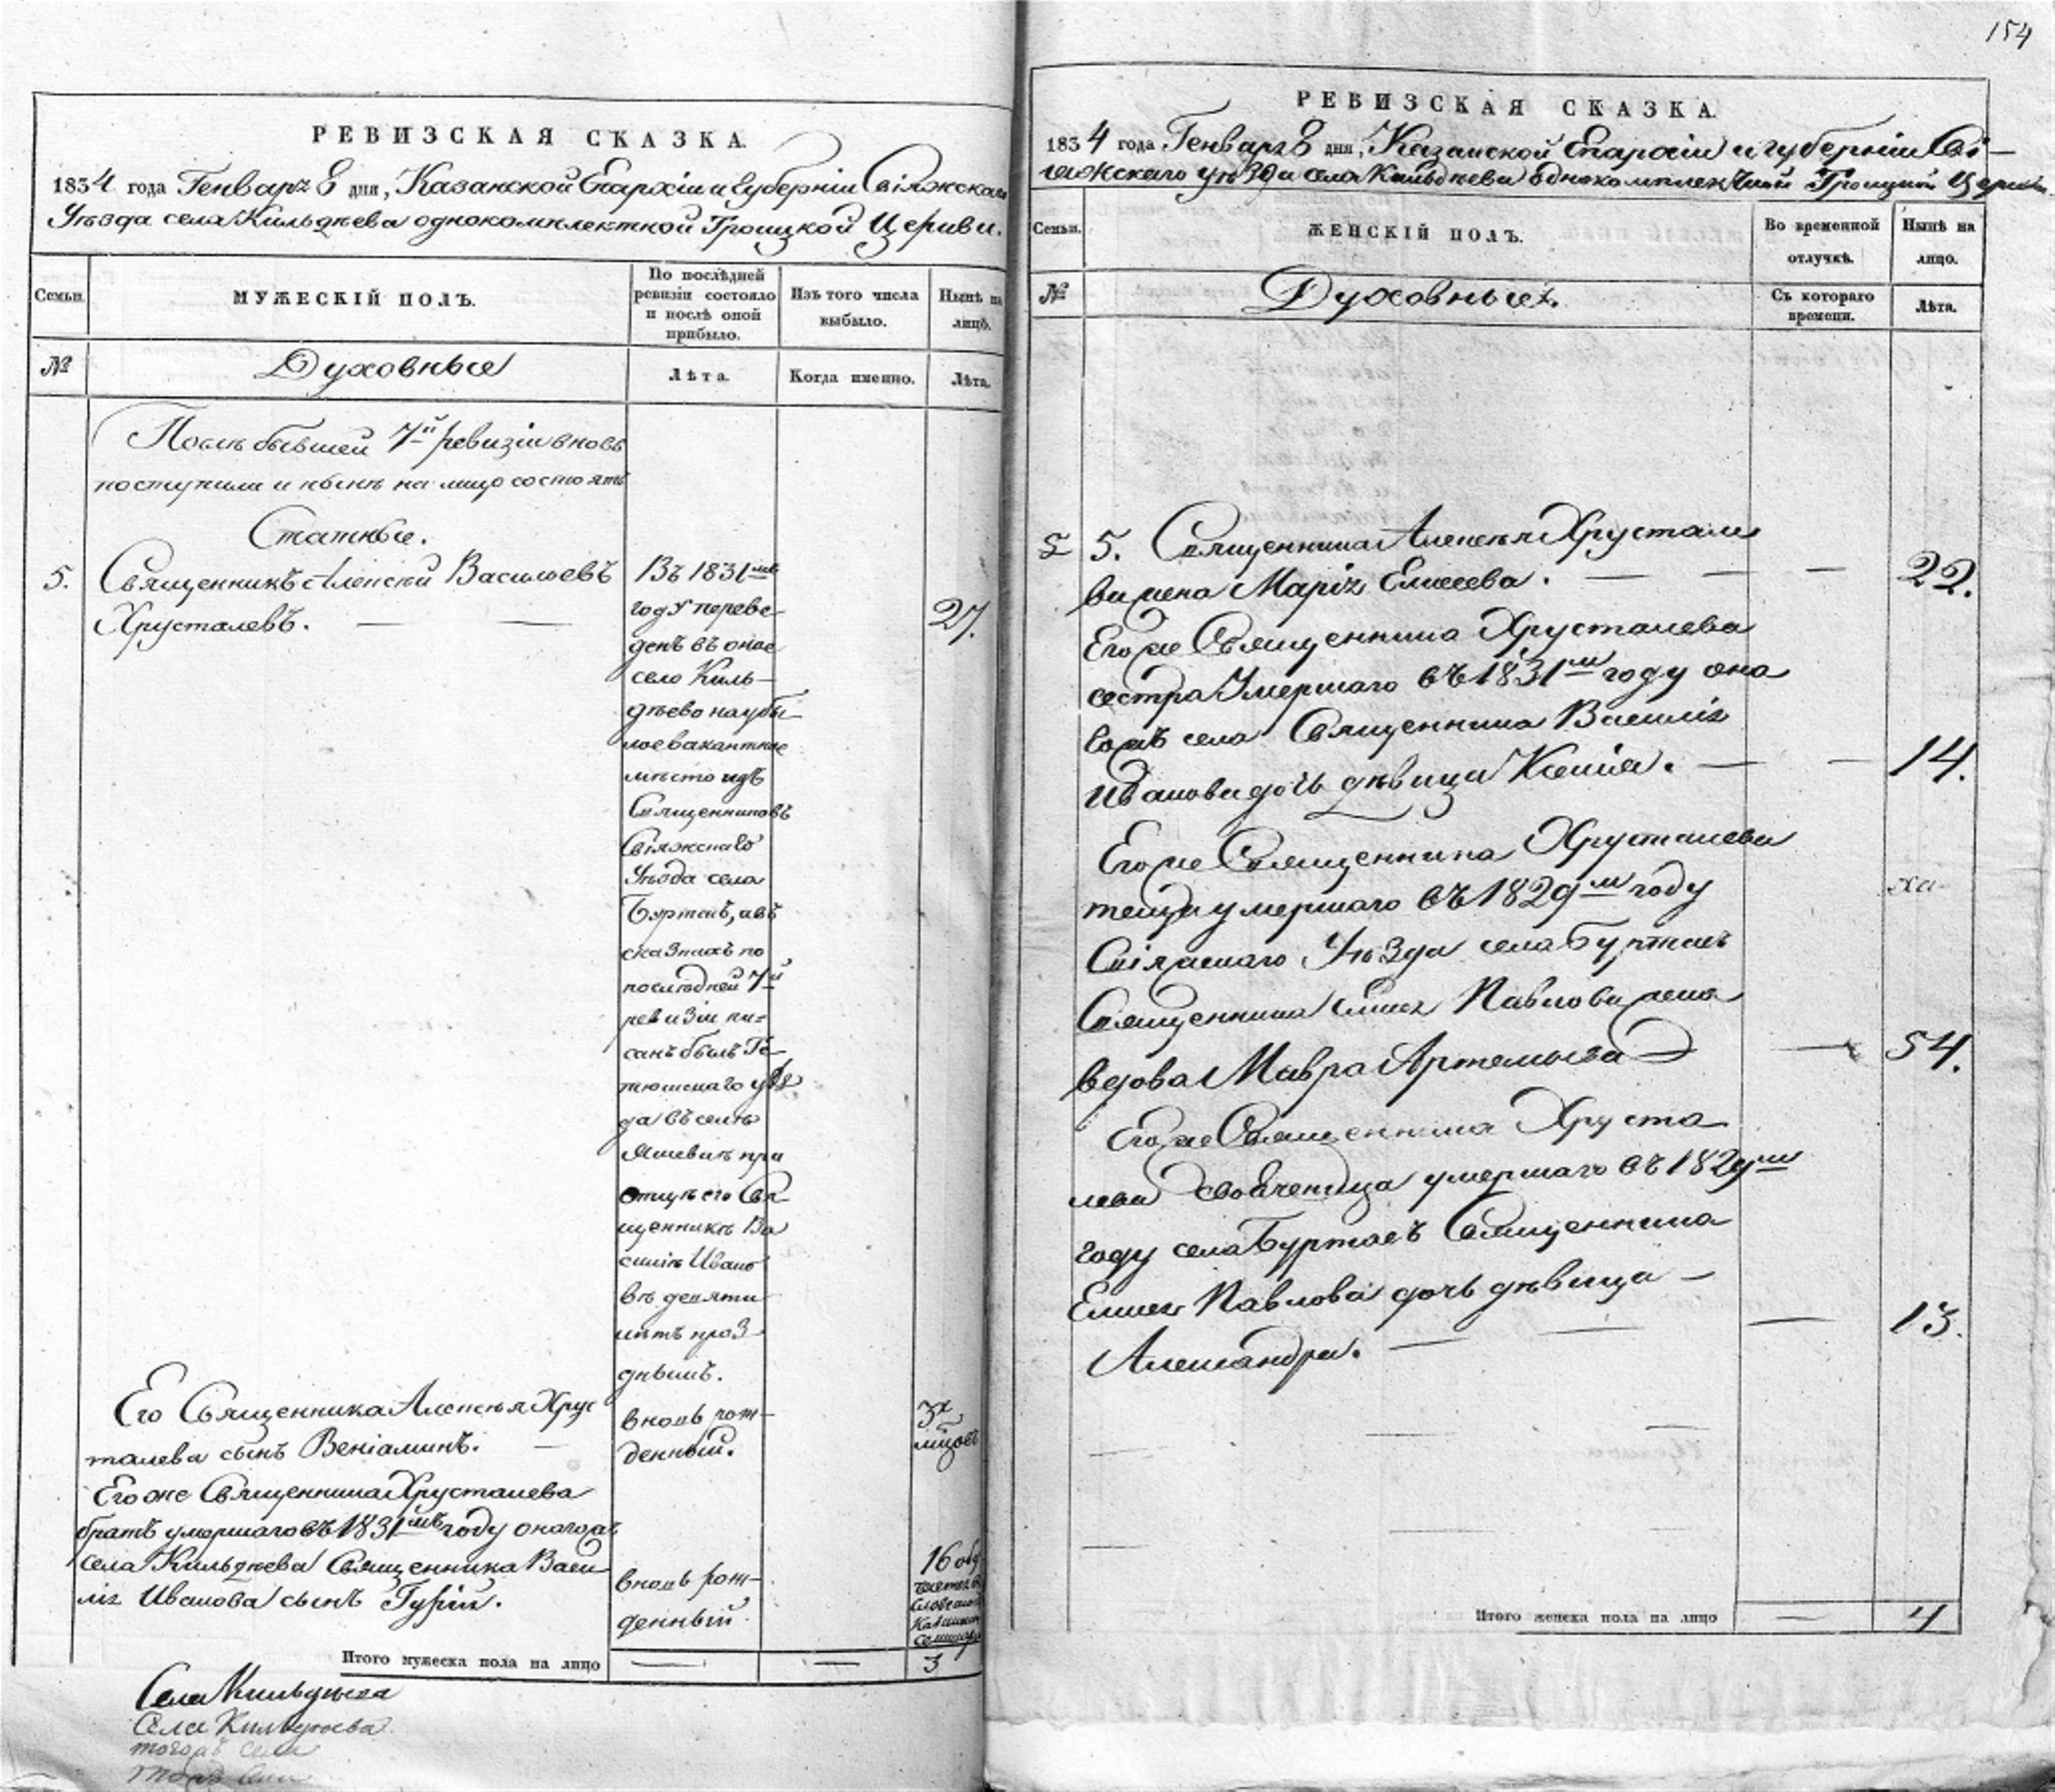 РЕВИЗСКАЯ СКАЗКА.
1834 года Генваря 8 дня, Казанской Епархіи и Губерніи Свіяжскаго
Уѣзда села Кильдѣева однокомплектной Троицкой Церкви.
Семьи.
МУЖЕСКІЙ ПОЛЪ.
По послѣдней
ревизіи состояло
и послѣ оной
прибыло.
Изъ того числа
выбыло.
Нынѣ на
лицо.
№
Духовные
Лѣта.
Когда именно.
Лѣта.
Послѣ бывшей 7й ревизіи вновь
поступили и нынѣ на лицо состоятъ
Статные.
5.
Священникъ Алексѣй Васильевъ
Хрусталевъ.
Въ 1831мъ
году переве-
денъ въ оное
село Киль-
дѣево на убы-
лое вакантное
мѣсто изъ
Священниковъ
Свіяжскаго
Уѣзда села
Буртасъ, а въ
сказкахъ по
послѣдней 7й
ревизіи пи-
санъ былъ Те-
тюшскаго уѣз
да въ селѣ
при
отцѣ его Свя
щенникѣ Ва
силіѣ Ивано
вѣ девяти
лѣтъ праз-
днымъ.
27.
Его Священника Алексѣя Хрус
талева сынъ Веніаминъ.
вновь рож-
денный.
3х
мѣсяцовъ
Его же Священника Хрусталева
братъ умершаго въ 1831мъ году онагожъ
села Кильдѣева Священника Васи
лія Иванова сынъ Гурій.
вновь рож-
денный.
16 обу
чается въ
Казанской
Семинаріи
Итого мужеска пола на лицо
3
Села Кильдѣева
Села Кильдѣева
тогожъ села
154
РЕВИЗСКАЯ СКАЗКА.
1834 года Генваря 8 дня, Казанской Епархіи и губерніи Сві-
яжскаго уѣзда села Кильдѣева однокомплектной Троицкой Церкви.
Семьи.
ЖЕНСКІЙ ПОЛЪ.
Во временной
отлучкѣ.
Нынѣ на
лицо.
№
Духовныхъ.
Съ котораго
времени.
Лѣта.
5. Священника Алексѣя Хрустале
ва жена Марія Елисеева.
22.
Его же Священника Хрусталева
сестра умершаго въ 1831м году она
гожъ села Священника Василія
Иванова дочь дѣвица Ксенія.
14.
Его же Священника Хрусталева
теща умершаго въ 1829м году
Свіяжскаго Уѣзда села Буртасъ
Священника Елисея Павлова жена
вдова Мавра Артемьева
54.
Его же Священника Хруста
лева своячени́ца умершаго въ 1829м
году села Буртасъ Священника
Елисея Павлова дочь дѣвица
Александра.
13.
Итого женска пола на лицо
4